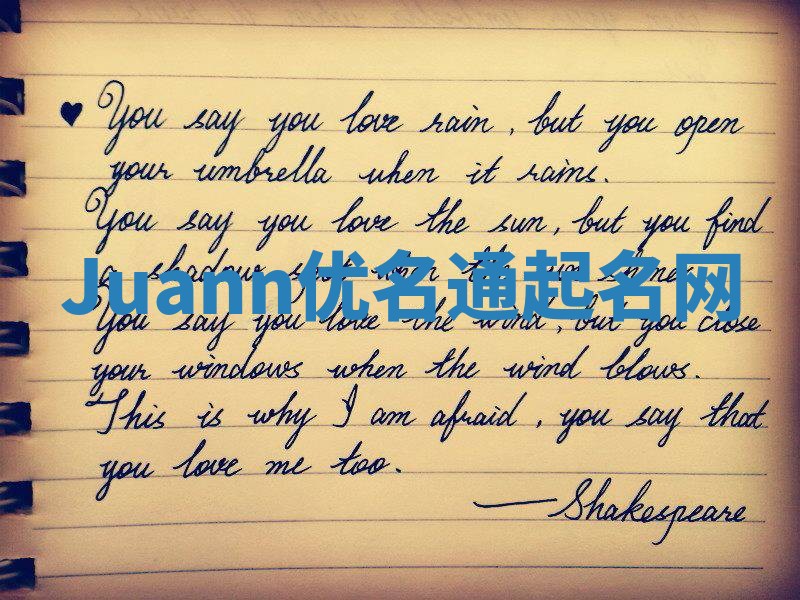 ♥ You say you love rain, but you open
your umbrella when it rains.
You say you love the sun, but you find
a shadow spot when the sun shines.
Juann优名通起名网
You say you love the wind, but you close
your windows when the wind blows.
This is why I am afraid, you say that
you love me too.
—Shakespeare